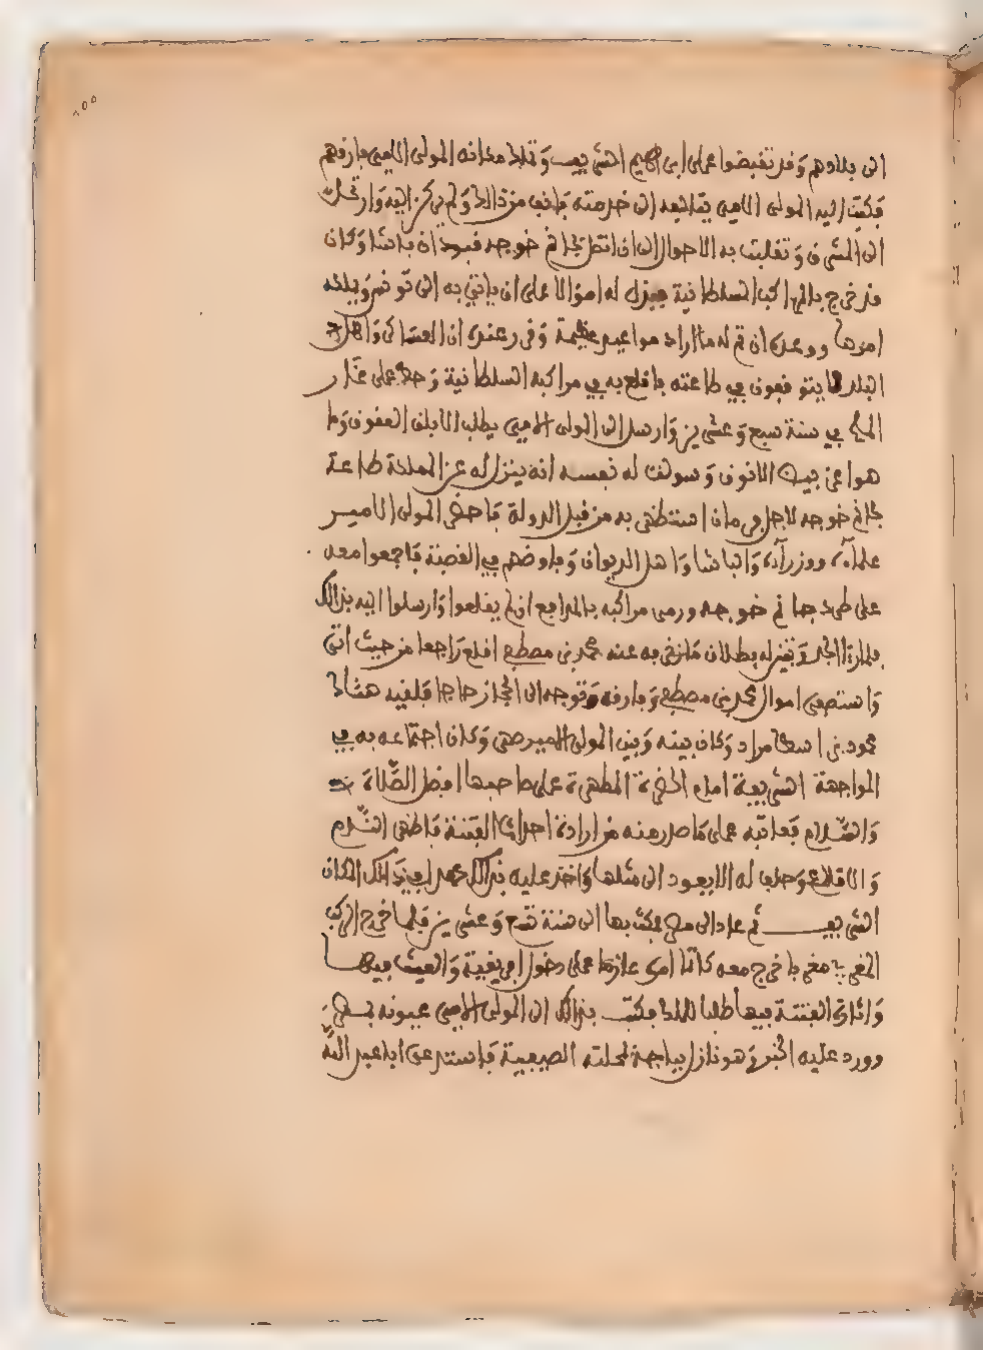 الى بلادهم وقد تقبضوا على ابراهيم الشريف وتملك مكانه المولى الامير ففارقهم
فكتب اليه المولى الامير يستالفه الى خدمته فانف من ذالك ولم يركن اليه وارتحل
الى المشرق وتقلبت به الاحوال الى ان اتصل بجانم خوجه قبودان باشا وكان
قد خرج بالمراكب السلطانية فبذل له اموالا على ان ياتي به الى تونس ويملكه
امرها ووعده ان تم له ما اراد مواعيد عظيمة وقرر عنده ان العساكر واهل
البلد لا يتوقفون في طاعته فاقلع به في مراكبه السلطانية وحط على
في سنة سبع وعشرين وارسل الى المولى الامير يطلب
هوا وسولت له نفسه انه ينزل له عن المملكة طاعة
بجانم خوجه لاجل فرمان استظهر به من قبل الدولة فاحضر المولى الامير
علماءه ووزراءه والباشا واهل الديوان وفاوضهم في القصبة فاجمعوا معه
على طرد جانم خوجه ورمي مراكبه بالمدافع ان لم يقلعوا وارسلوا اليه بذالك
فلما راى الجد وتبين له بطلان ما زخرفه عنه محمد بن مصطفى اقلع راجعا من حيث اتى
واستصفى اموال محمد بن مصطفى وفارقه وتوجه الى الحجاز حاجا فلقيه هناك
محمود بن مراد وكان بينه وبين المولى الامير وكان اجتماعه به في
المواجهة الشريفة امام الحضرة المطهرة على صاحبها افضل الصلاة
والسلام فعاتبه على ما صدر منه من ارادة احداث الفتنة فاظهر الندم
والاقلاع وحلف له الا يعود الى مثلها واخذ عليه بذالك عهدا في ذالك المكان
الشريف ثم عاد الى مصر فمكث بها الى سنة تسع وعشرين فلما خرج الركب
المغربي مغربا خرج معه كاتما امره عازما على دخول افريقية والعيث فيها
واثارة الفتنة فيها طلبا للملك فكتب بذالك الى المولى الامير عيونه بمصر
وورد عليه الخبر وهو نازل بباجة لمحلته الصيفية فاستدعى ابا عبد الله